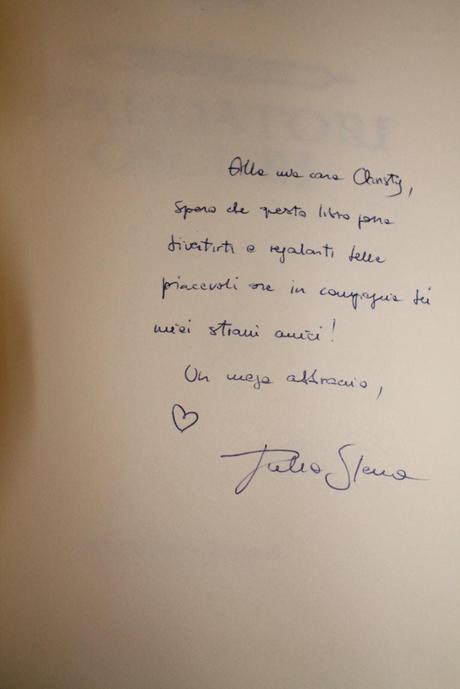 Alla mia cara Christy,
spero che questo libro possa
divertirti e regalarti delle
piacevoli ore in compagnia dei
miei strani amici!
Un mega abbraccio,